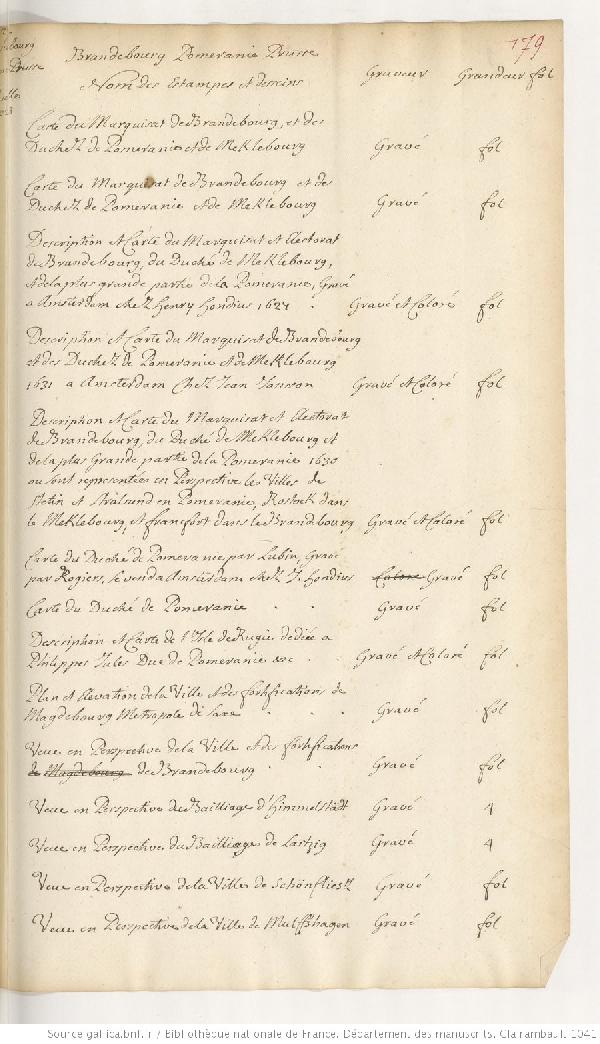 179
Brandebourg Pomeranie Prusse
Noms des Estampes et desseins Graveur Grandeur fol
Carte du Marquisat de Brandebourg, et des
Duchez de Pomeranie et de Meklebourg Gravé fol
Carte du Marquisat de Brandebourg et des
Duchez de Pomeranie et de Meklebourg Gravé fol
Description et Carte du Marquisat et Electorat
de Brandebourg, du Duché de Meklebourg,
et de la plus grande partie de la Pomeranie, Gravé
a Amsterdam chez Henry Hondius Gravé et Coloré fol
Description et Carte du Marquisat de Brandebourg
et des Duchez de Pomeranie et de Meklebourg
1631 a Amsterdam Chez Jean Gravé et Coloré fol
Description et Carte du Marquisat et Electorat
de Brandebourg, du Duché de Meklebourg et
de la plus Grande partie de la Pomeranie 1630
ou sont representées en Perspective les Villes de
Stetin et Stralsund en Pomeranie, Rostock dans
le Meklebourg, et francfort dans le Brandbourg Gravé et Coloré fol
Carte du Duché de Pomeranie par Lubin, Gravé
par Rogiers, se vend a Amsterdam chez J. Hondius Coloré Gravé fol
Carte du Duché de Pomeranie . . Gravé fol
Description et Carte de l'Isle de Rugie dediée a
Philippes Jules Duc de Pomeranie . Gravé et Coloré fol
Plan et Elevation de la Ville et des fortifications de
Magdebourg Metropole de Saxe . . . Gravé fol
Veue en Perspective de la Ville et des fortifications
de Magdebourg de Brandebourg . . Gravé fol
Veue en Perspective du Bailliage d'Himmelstädt Gravé 4
Veue en Perspective du Bailliage de Gravé 4
Veue en Perspective de la Ville de Schönfliess Gravé fol
Veue en Perspective de la Ville de Gravé fol
Source gallica.bnf.fr / Bibliothèque nationale de France. Département des manuscrits. Clairambault. 1041